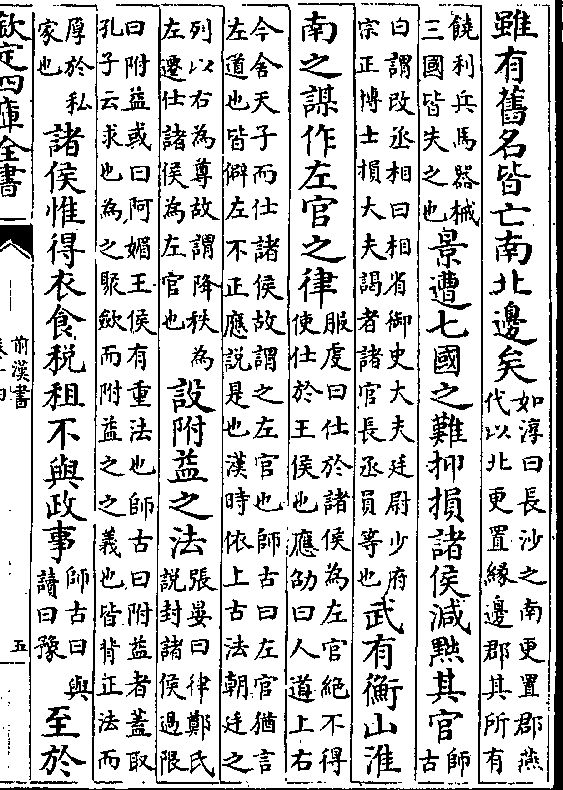 雖有舊名皆亡南北邊矣如淳曰長沙之南更置郡燕代以北更置緣邊郡其所有
饒利兵馬器械三國皆失之也景遭七國之難抑損諸侯減黜其官師古
曰謂改丞相曰相省御史大夫廷尉少府宗正博士損大夫謁者諸官長丞員等也武有衡山淮
南之謀作左官之律服虔曰仕於諸侯為左官絕不得使仕於王侯也應劭曰人道上右
今舍天子而仕諸侯故謂之左官也師古曰左官猶言左道也皆僻左不正應説是也漢時依上古法朝廷之
列以右為尊故謂降秩為左遷仕諸侯為左官也設附益之法張晏曰律鄭氏説封諸侯過限
曰附益或曰阿媚王侯有重法也師古曰附益者蓋取孔子云求也為之聚歛而附益之之義也皆背正法而
厚於私家也諸侯惟得衣食税租不與政事師古曰與讀曰豫至於
欽定四庫全書
前漢書
五